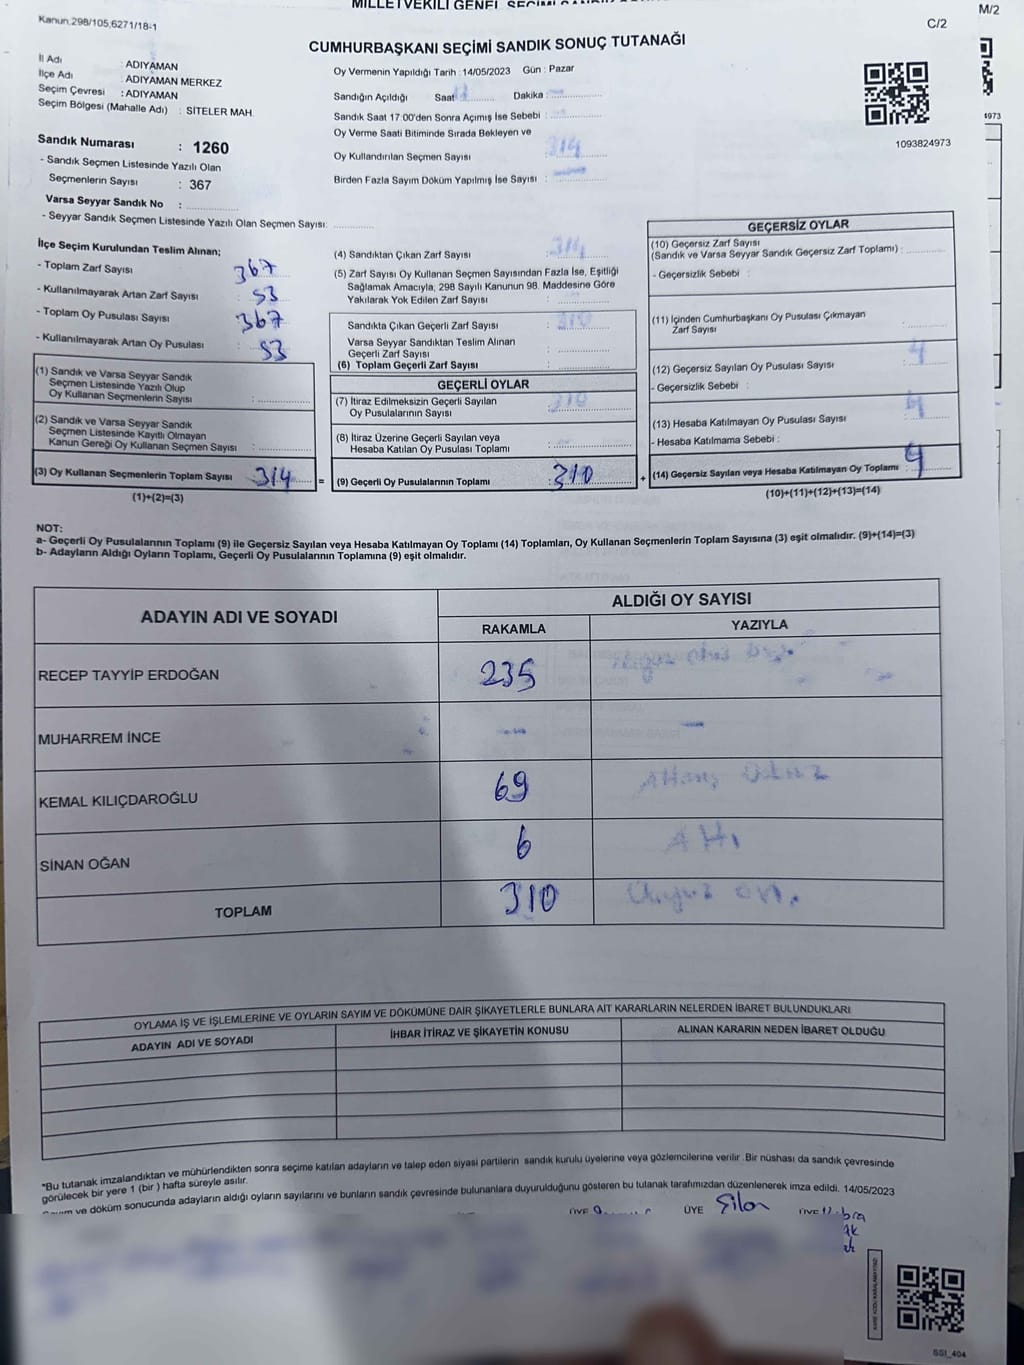 MİLLETVEKİLİ GENEL SEÇİMİ
M/2
Kanun.298/105,6271/18-1
C/2
CUMHURBAŞKANI SEÇİMİ SANDIK SONUÇ TUTANAĞI
İl Adı : ADIYAMAN
İlçe Adı : ADIYAMAN MERKEZ
Seçim Çevresi : ADIYAMAN
Seçim Bölgesi (Mahalle Adı) : SİTELER MAH.
Oy Vermenin Yapıldığı Tarih : 14/05/2023 Gün : Pazar
Sandığın Açıldığı Saat Dakika :
Sandık Saat 17:00'den Sonra Açımış İse Sebebi :
Oy Verme Saati Bitiminde Sırada Bekleyen ve
Oy Kullandırılan Seçmen Sayısı : 314
Birden Fazla Sayım Döküm Yapılmış İse Sayısı :
1093824973
4973
Sandık Numarası : 1260
- Sandık Seçmen Listesinde Yazılı Olan
Seçmenlerin Sayısı : 367
Varsa Seyyar Sandık No :
- Seyyar Sandık Seçmen Listesinde Yazılı Olan Seçmen Sayısı:
İlçe Seçim Kurulundan Teslim Alınan;
- Toplam Zarf Sayısı 367
- Kullanılmayarak Artan Zarf Sayısı : 53
- Toplam Oy Pusulası Sayısı 367
- Kullanılmayarak Artan Oy Pusulası : 53
(1) Sandık ve Varsa Seyyar Sandık
Seçmen Listesinde Yazılı Olup
Oy Kullanan Seçmenlerin Sayısı :
(2) Sandık ve Varsa Seyyar Sandık
Seçmen Listesinde Kayıtlı Olmayan
Kanun Gereği Oy Kullanan Seçmen Sayısı :
(3) Oy Kullanan Seçmenlerin Toplam Sayısı : 314 =
(1)+(2)=(3)
(4) Sandıktan Çıkan Zarf Sayısı : 314
(5) Zarf Sayısı Oy Kullanan Seçmen Sayısından Fazla İse, Eşitliği
Sağlamak Amacıyla, 298 Sayılı Kanunun 98. Maddesine Göre
Yakılarak Yok Edilen Zarf Sayısı :
Sandıkta Çıkan Geçerli Zarf Sayısı : 310
Varsa Seyyar Sandıktan Teslim Alınan
Geçerli Zarf Sayısı :
(6) Toplam Geçerli Zarf Sayısı :
GEÇERLİ OYLAR
(7) İtiraz Edilmeksizin Geçerli Sayılan
Oy Pusulalarının Sayısı : 310
(8) İtiraz Üzerine Geçerli Sayılan veya
Hesaba Katılan Oy Pusulası Toplamı :
(9) Geçerli Oy Pusulalarının Toplamı : 310 +
GEÇERSİZ OYLAR
(10) Geçersiz Zarf Sayısı
(Sandık ve Varsa Seyyar Sandık Geçersiz Zarf Toplamı) :
- Geçersizlik Sebebi :
(11) İçinden Cumhurbaşkanı Oy Pusulası Çıkmayan
Zarf Sayısı :
(12) Geçersiz Sayılan Oy Pusulası Sayısı : 4
- Geçersizlik Sebebi :
(13) Hesaba Katılmayan Oy Pusulası Sayısı :
- Hesaba Katılmama Sebebi :
(14) Geçersiz Sayılan veya Hesaba Katılmayan Oy Toplamı : 4
(10)+(11)+(12)+(13)=(14)
NOT:
a- Geçerli Oy Pusulalarının Toplamı (9) ile Geçersiz Sayılan veya Hesaba Katılmayan Oy Toplamı (14) Toplamları, Oy Kullanan Seçmenlerin Toplam Sayısına (3) eşit olmalıdır. (9)+(14)=(3)
b- Adayların Aldığı Oyların Toplamı, Geçerli Oy Pusulalarının Toplamına (9) eşit olmalıdır.
ADAYIN ADI VE SOYADI
ALDIĞI OY SAYISI
RAKAMLA
YAZIYLA
RECEP TAYYİP ERDOĞAN 235
MUHARREM İNCE -
KEMAL KILIÇDAROĞLU 69 Altmış Dokuz
SİNAN OĞAN 6 Altı
TOPLAM 310 Üçyüz on.
OYLAMA İŞ VE İŞLEMLERİNE VE OYLARIN SAYIM VE DÖKÜMÜNE DAİR ŞİKAYETLERLE BUNLARA AİT KARARLARIN NELERDEN İBARET BULUNDUKLARI
ADAYIN ADI VE SOYADI
İHBAR İTİRAZ VE ŞİKAYETİN KONUSU
ALINAN KARARIN NEDEN İBARET OLDUĞU
"Bu tutanak imzalandıktan ve mühürlendikten sonra seçime katılan adayların ve talep eden siyasi partilerin sandık kurulu üyelerine veya gözlemcilerine verilir .Bir nüshası da sandık çevresinde
görülecek bir yere 1 (bir ) hafta süreyle asılır.
ve döküm sonucunda adayların aldığı oyların sayılarını ve bunların sandık çevresinde bulunanlara duyurulduğunu gösteren bu tutanak tarafımızdan düzenlenerek imza edildi. 14/05/2023
ÜYE ÜYE ÜYE
SSI_404